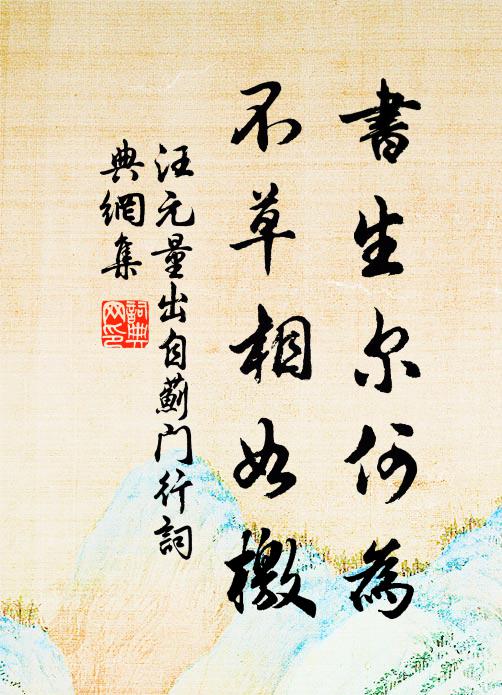 書生尔何為
不草相如檄
汪元量出自薊门行詞
典網集
詞典網印